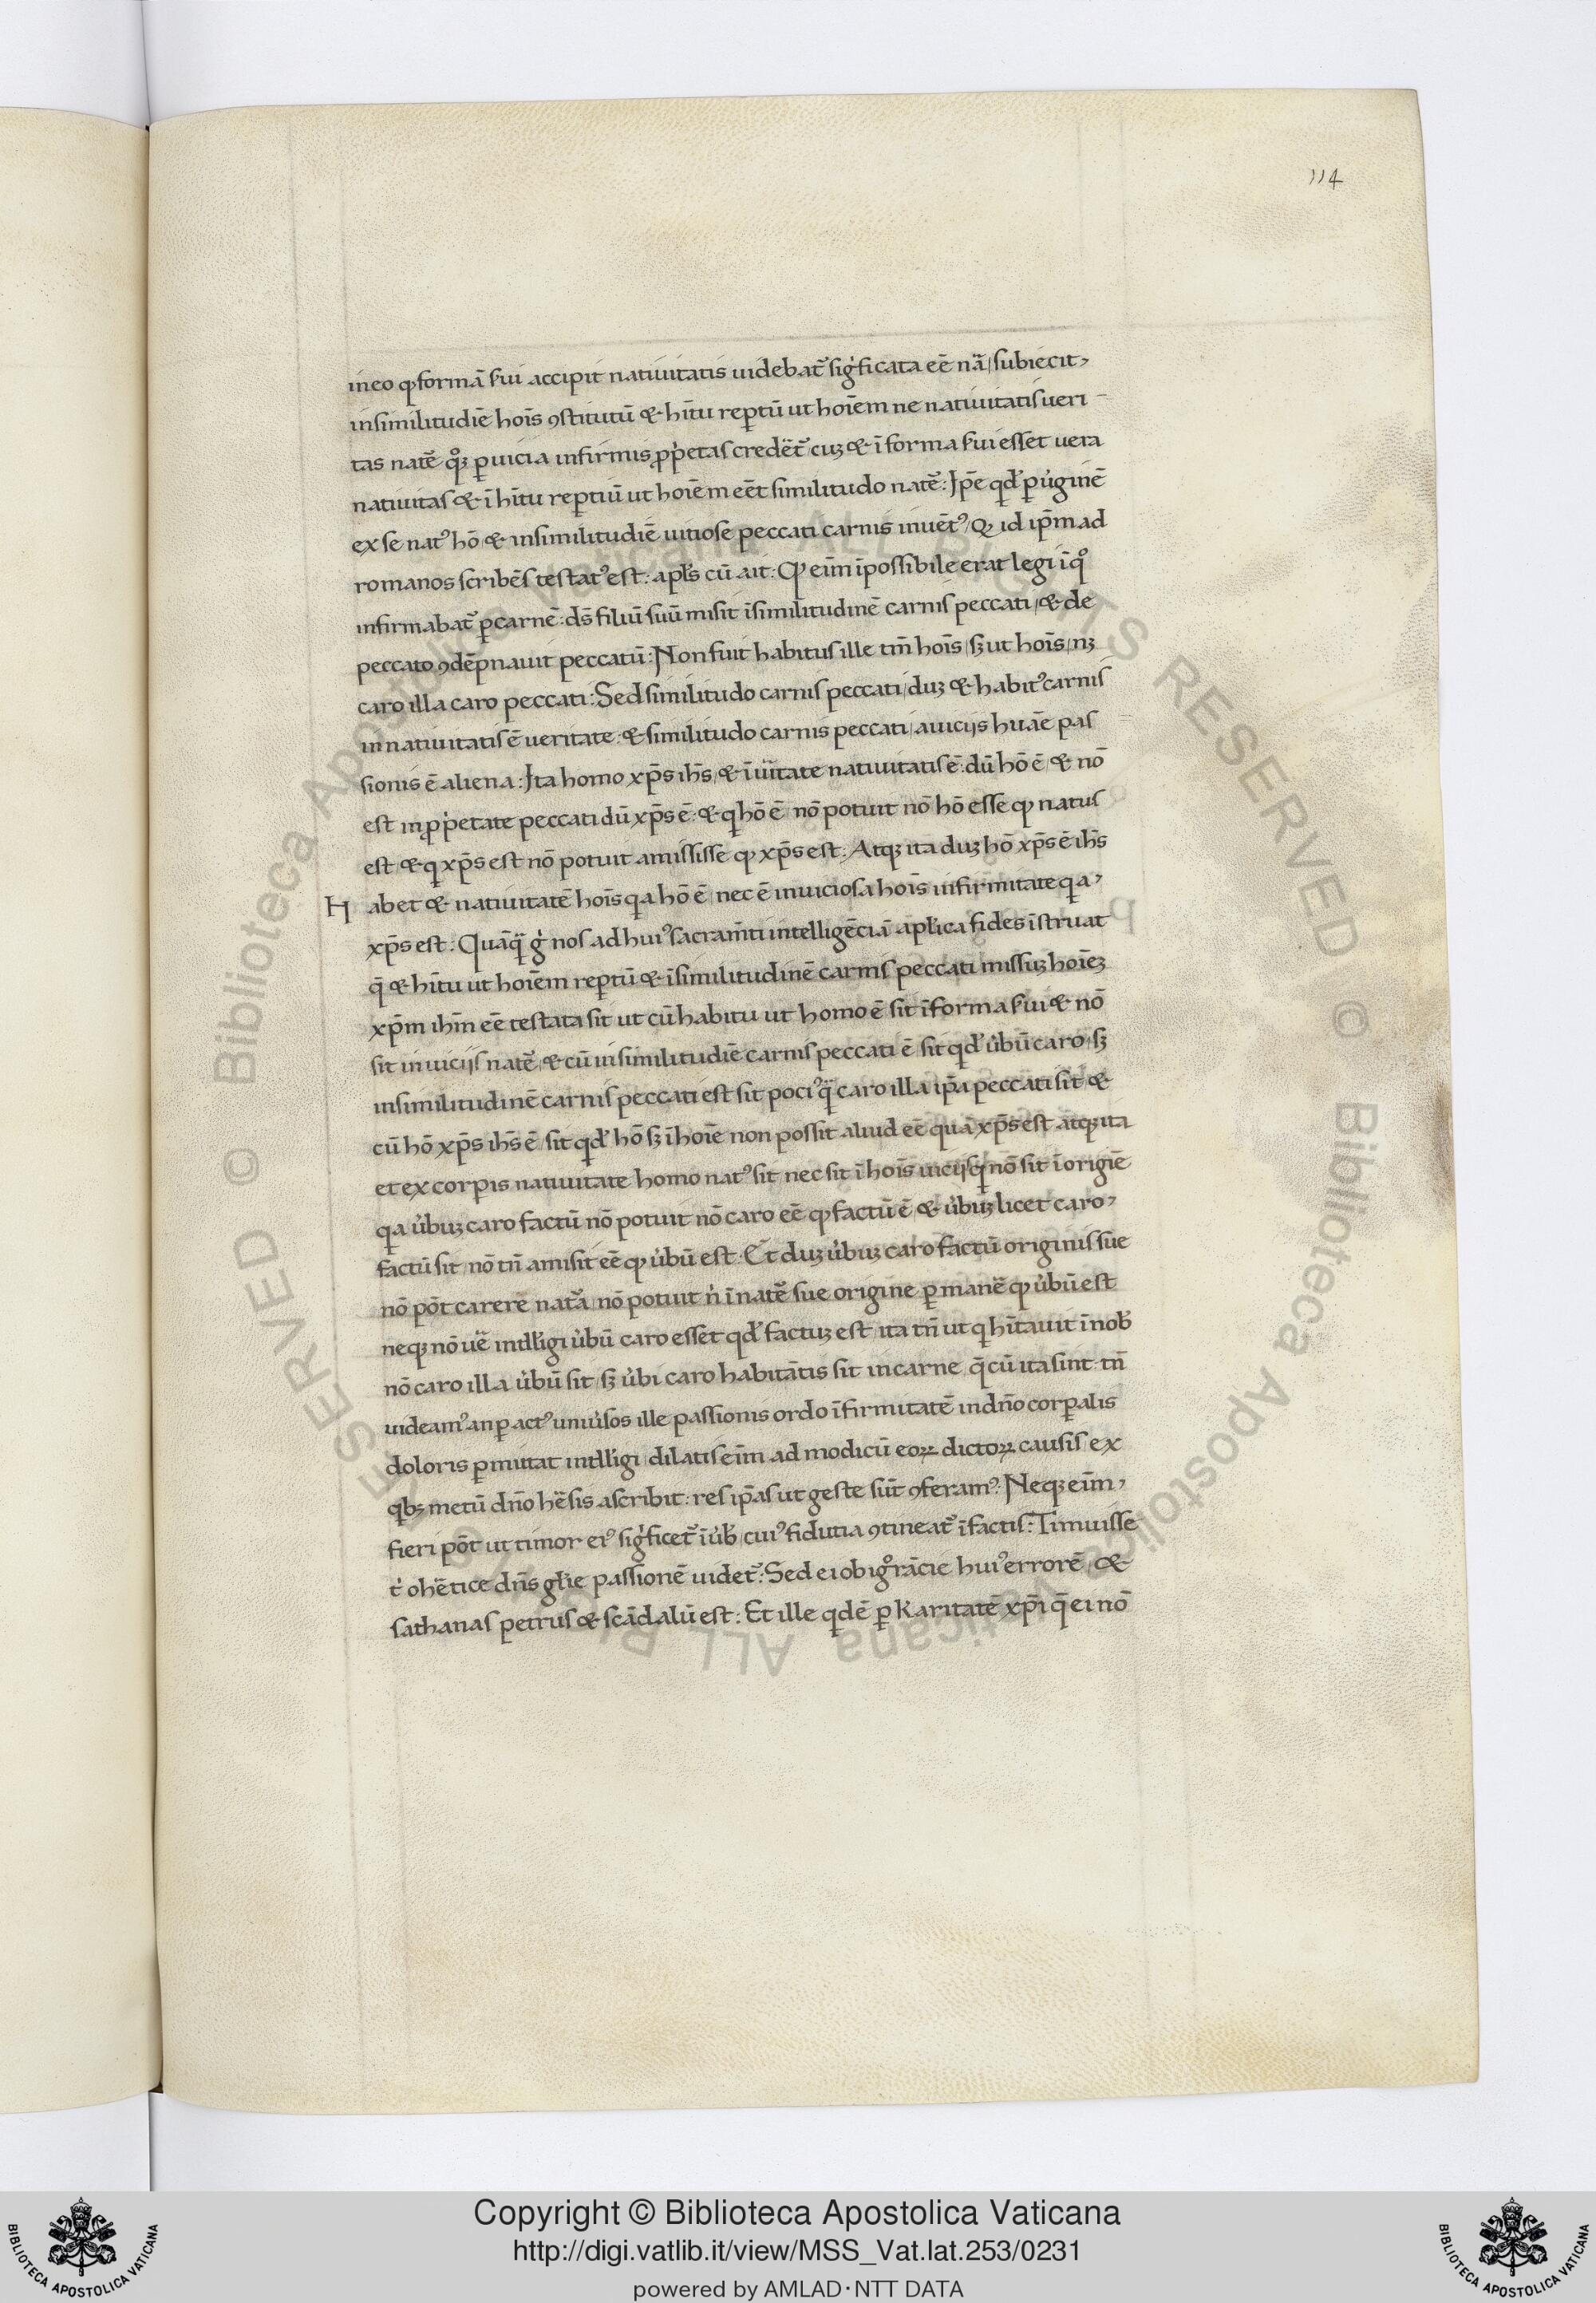 114
in eo ꝙ formā s̄ui accipit nativitatis videbat᷑ sigͥficata eē nã / subiecit,
in similitudiē hoīs ꝯstitutū & hītu rep̱tū ut hoīem ne nativitatis veri-
tas natē᷑ qͦꝫ p̱ vicia infirmis ꝓpͥetas credēt᷑ cuꝫ & ī forma s̄ui esset vera
nativitas & ī hītu rep̱tiū ut hoīem eēt similitudo natē᷑: Ip̄e qͥdē p̱ vͥginē
ex se natꝰ hō & in similitudiē vitiose peccati carnis invētꝰ / Qꝫ id ip̄m ad
romanos scribēs testatꝰ est: apl̄s cū ait: Qꝙ eīm īpossibile erat legi ī qͦ
infirmabat᷑ p̱ carnē: ds̄ filiū suū misit ī similitudinē carnis peccati / & de
peccato ꝯdēpnavit peccatū: Non fuit habitus ille tm̄ hoīs / sꝫ ut hoīs / nꝫ
caro illa caro peccati: Sed similitudo carnis peccati / duꝫ & habitꝰ carnis
in nativitatis ē veritate: & similitudo carnis peccati / a viciis huāe pas
sionis ē aliena: Ita homo xp̄s ihs̄ / & ī vi᷑tate nativitatis ē: dū hō ē / & nō
est in ꝓpͥetate peccati dū xp̄s ē: & qͥ hō ē nō potuit nō hō esse ꝙ natus
est & qͥ xp̄s est nō potuit amisisse ꝙ xp̄s est: Atqꝫ ita duꝫ hō xp̄s ē ihs̄
Habet & nativitatē hoīs qͥa hō ē / nec ē in viciosa hoīs infirmitate qͥa,
xp̄s est: Quāqͣ gͥ nos ad huiꝰ sacram̄ti intelligēciā apl̄ica fides īstruat
q̄ & hītu ut hoīem rep̱tū & ī similitudinē carnis peccati missuꝫ hoīeꝫ
xp̄m ihm̄ eē testata sit ut cū habitu ut homo ē sit ī forma s̄ui & nō
sit in viciis natē᷑ & cū in similitudiē carnis peccati ē sit qͥdē vͥbū caro / sꝫ
in similitudinē carnis peccati est sit pociꝰ qͣ caro illa ip̄a peccati sit &
cū hō xp̄s ihs̄ ē / sit qͥdē hō sꝫ ī hoīe non possit aliud eē quā xp̄s est atqꝫ ita
et ex corp̱is nativitate homo natꝰ sit nec sit ī hoīs viciis qͥ nō sit ī origiē
qͥa vͥbuꝫ caro factū nō potuit nō caro eē ꝙ factū ē / & vͥbuꝫ licet caro,
factū sit / nō tn̄ amisit eē ꝙ vͥbū est. Et duꝫ vͥbuꝫ caro factū originis sue
nō pōt carere nat᷑a / nō potuit nͥ ī natē᷑ sue origine p̱manē᷑ ꝙ vͥbū est
neqꝫ nō ve᷑ intll̄igi vͥbū caro esset qͥdē factuꝫ est / ita tn̄ ut qͥ hītavit ī nob̄
nō caro illa vͥbū sit / sꝫ vͥbi caro habitātis sit in carne q̄ cū ita sint: tn̄
videamꝰ an p̱ actꝰ univͥsos ille passionis ordo īfirmitatē in dn̄o corp̱alis
doloris p̱mittat intll̄igi / dilatis eīm ad modicū eoꝝ dictoꝝ causis ex
qͥbꝫ metū dn̄o he᷑sis ascribit: res ip̄as ut geste sūt ꝯferamꝰ: Neqꝫ eīm,
fieri pōt ut timor eiꝰ sigͥficet᷑ ī vͥb̄ / cuiꝰ fidutia ꝯtineat᷑ ī factis: Timuisse
tͥ o he᷑tice dn̄s gl̄ie passionē videt᷑: Sed ei ob igͦrācie huiꝰ errorē / &
sathanas petrus & scādalū est: Et ille qͥdē p̱ karitatē xp̄i q̄ ei nō
Copyright © Biblioteca Apostolica Vaticana
http://digi.vatlib.it/view/MSS_Vat.lat.253/0231
powered by AMLAD·NTT DATA